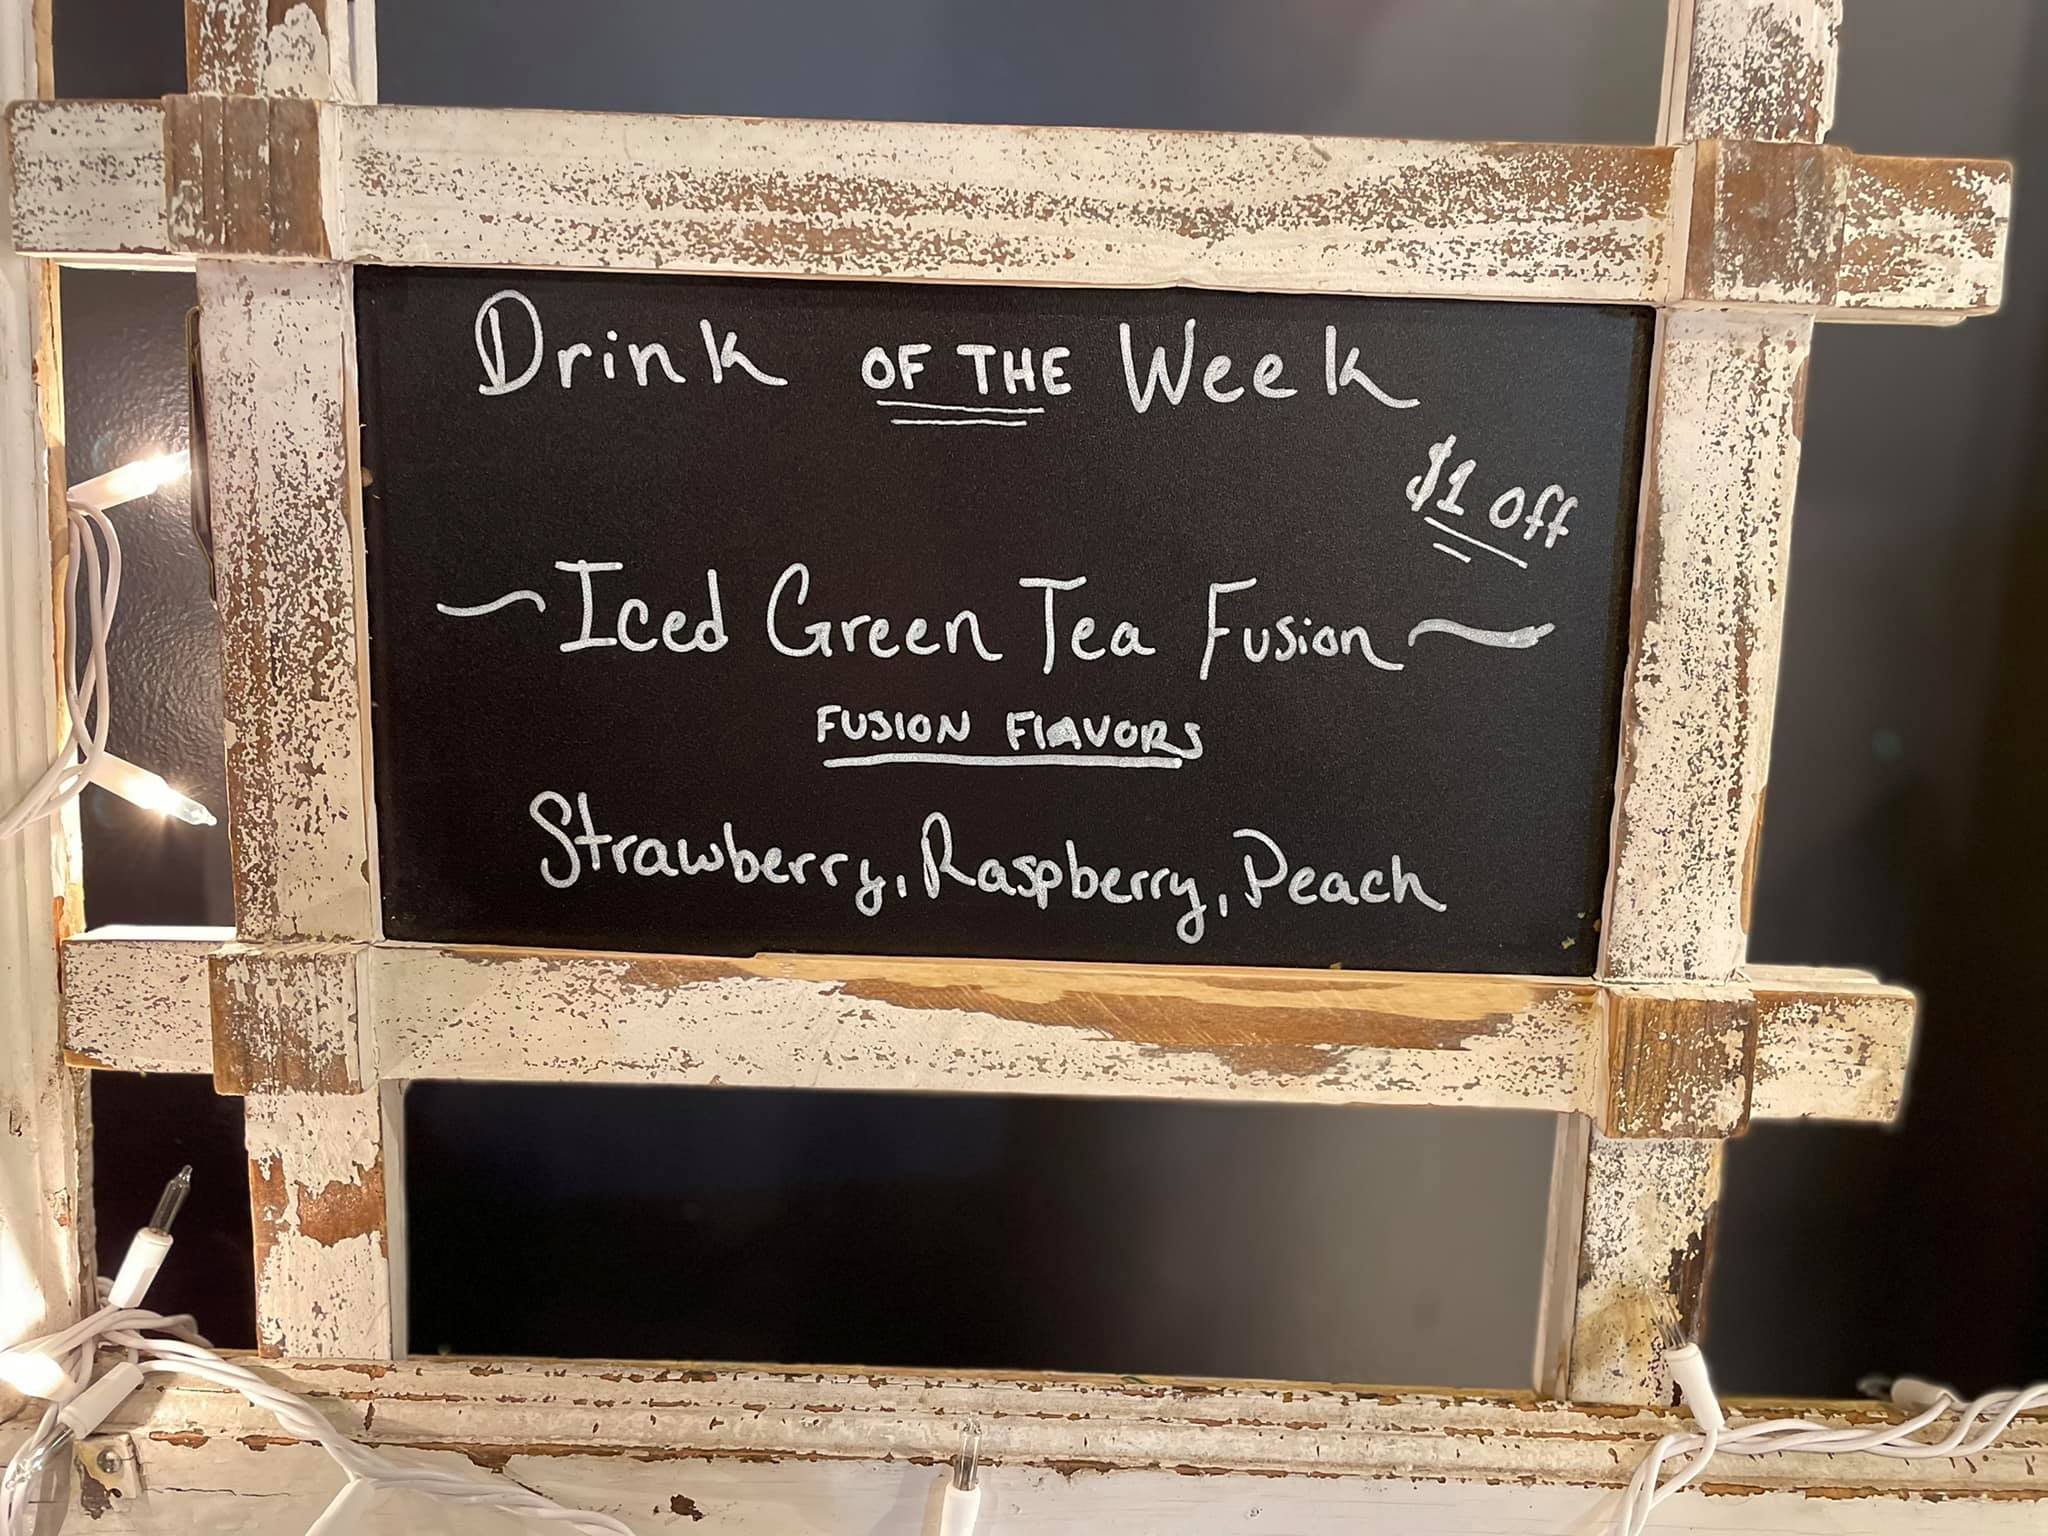 Drink OF THE Week
$1 off
~Iced Green Tea Fusion~
FUSION FLAVORS
Strawberry, Raspberry, Peach